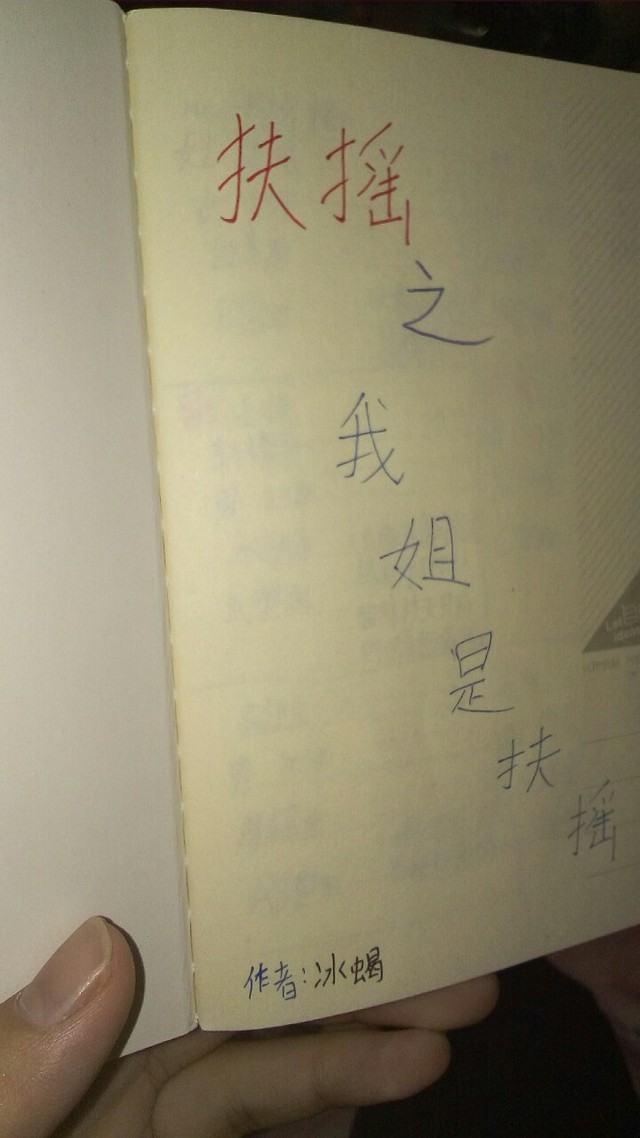 扶摇
之
我
姐
是
扶
摇
作者:冰蝎